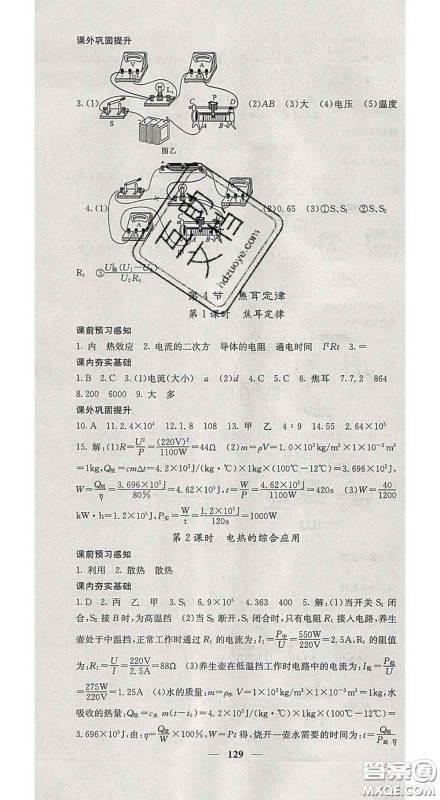 课外巩固提升
3.(1)
(2)AB (3)大 (4)电压 (5)温度
V
A
L₁
S
C
P
D
A
B
图乙
4.(1)
(2)0.65 (3)①S、S₁ ②S、S₁
R₁ ③
第4节 焦耳定律
第1课时 焦耳定律
课前预习感知
1. 内 热效应 2. 电流的二次方 导体的电阻 通电时间 I²Rt 3. =
课内夯实基础
1. B 2. C 3. (1)电流(大小) a (2)d 4. C 5. C 6. 焦耳 7. 7.2 864
8. 200 6000 9. 大 多
课外巩固提升
10. A 11. 2.4×10⁴ 12. 1.8 108 13. 甲 乙 4∶9 14. 55 2.64×10⁵
15. 解:(1)R=U²/P=(220V)²/1100W=44Ω (2)m=ρV=1.0×10³kg/m³×1×10⁻³m³
=1kg,Q吸=cmΔt=4.2×10³J/(kg·℃)×1kg×(100℃-12℃)=3.696×10⁵J,
W=Q吸/η=3.696×10⁵J/80%=4.62×10⁵J,t=W/P=4.62×10⁵J/1100W=420s (3)W=40/1200
kW·h=1.2×10⁵J,P实=W/t=1.2×10⁵J/120s=1000W
第2课时 电热的综合应用
课前预习感知
1. 利用 2. 散热 散热
课内夯实基础
1. D 2. 丙 乙 甲 3. S₁ 6.9×10⁵ 4. 363 400 5. 解:(1)当开关S₁闭
合,S₂接B时,为高温挡 (2)当S₂断开、S₁闭合时,只有电阻R₁接入电路,养生
壶处于中温挡,正常工作时通过R₁的电流为:I₁=P中/U=550W/220V=2.5A,R₁的阻值
为:R₁=U/I=220V/2.5A=88Ω (3)养生壶在低温挡工作时电路中的电流为:I低=P低/U
=275W/220V=1.25A (4)水的质量:m=ρ水V=1×10³kg/m³×1×10⁻³m³=1kg,水
吸收的热量:Q吸=c水m(t-t₀)=4.2×10³J/(kg·℃)×1kg×(100℃-12℃)=
3.696×10⁵J,由:η=Q吸/W×100%,W=Pt得,烧开一壶水需要的时间为:t=Q吸/P高η
129
互助文档
hdzuoye.com
答案圈
MXQE.COM